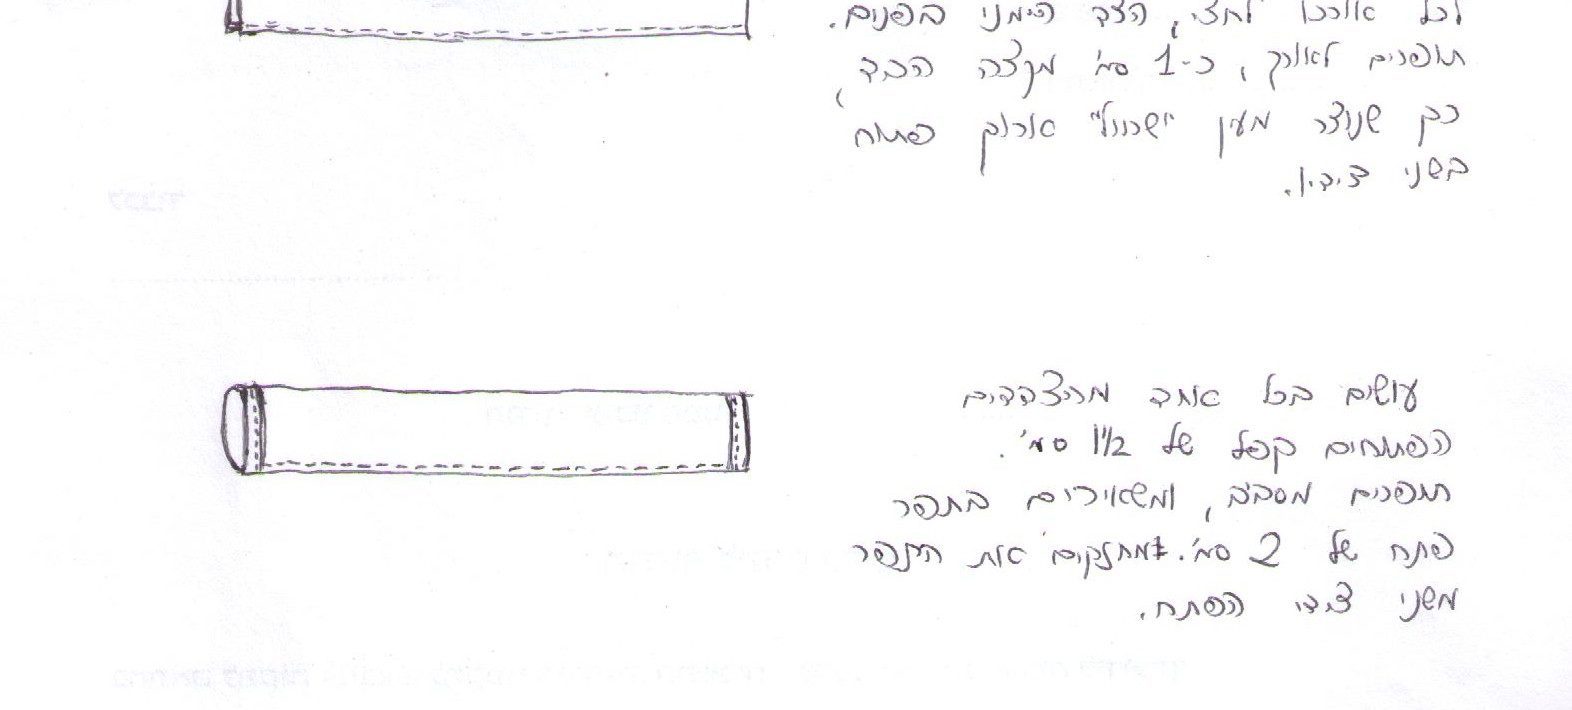 לכל אורכו לחצי, הצד הימני בפנים.
תופרים לאורך, כ-1 סמ' מקצה הבד,
כך שנוצר מעין "שרוול" ארוך פתוח
בשני צידיו.
עושים בכל אחד מהצדדים
הפתוחים קפל של 1½ סמ'.
תופרים מסביב, ומשאירים בתפר
פתח של 2 סמ'. מחזקים את התפר
משני צידי הפתח.